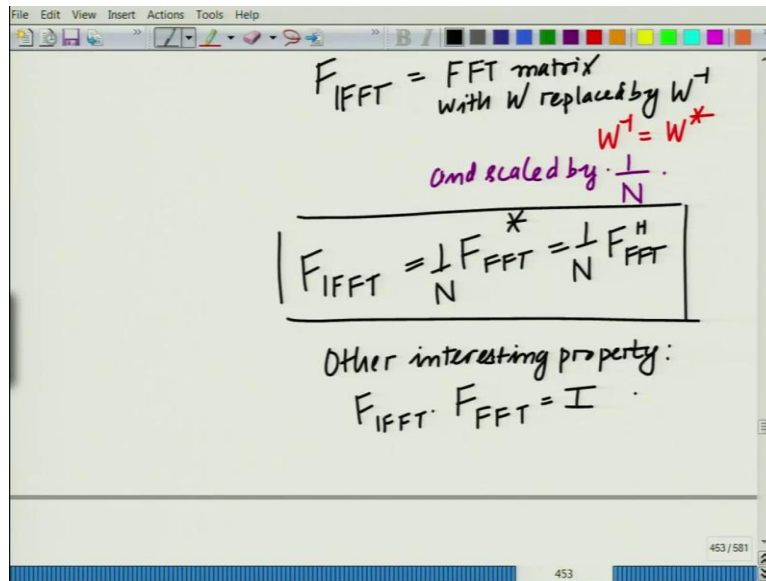 File Edit View Insert Actions Tools Help
» » B I
F_IFFT = FFT matrix
with W replaced by W⁻¹
W⁻¹ = W*
and scaled by · 1/N .
F_IFFT = 1/N F*_FFT = 1/N F^H_FFT
Other interesting property:
F_IFFT · F_FFT = I .
453 / 581
453